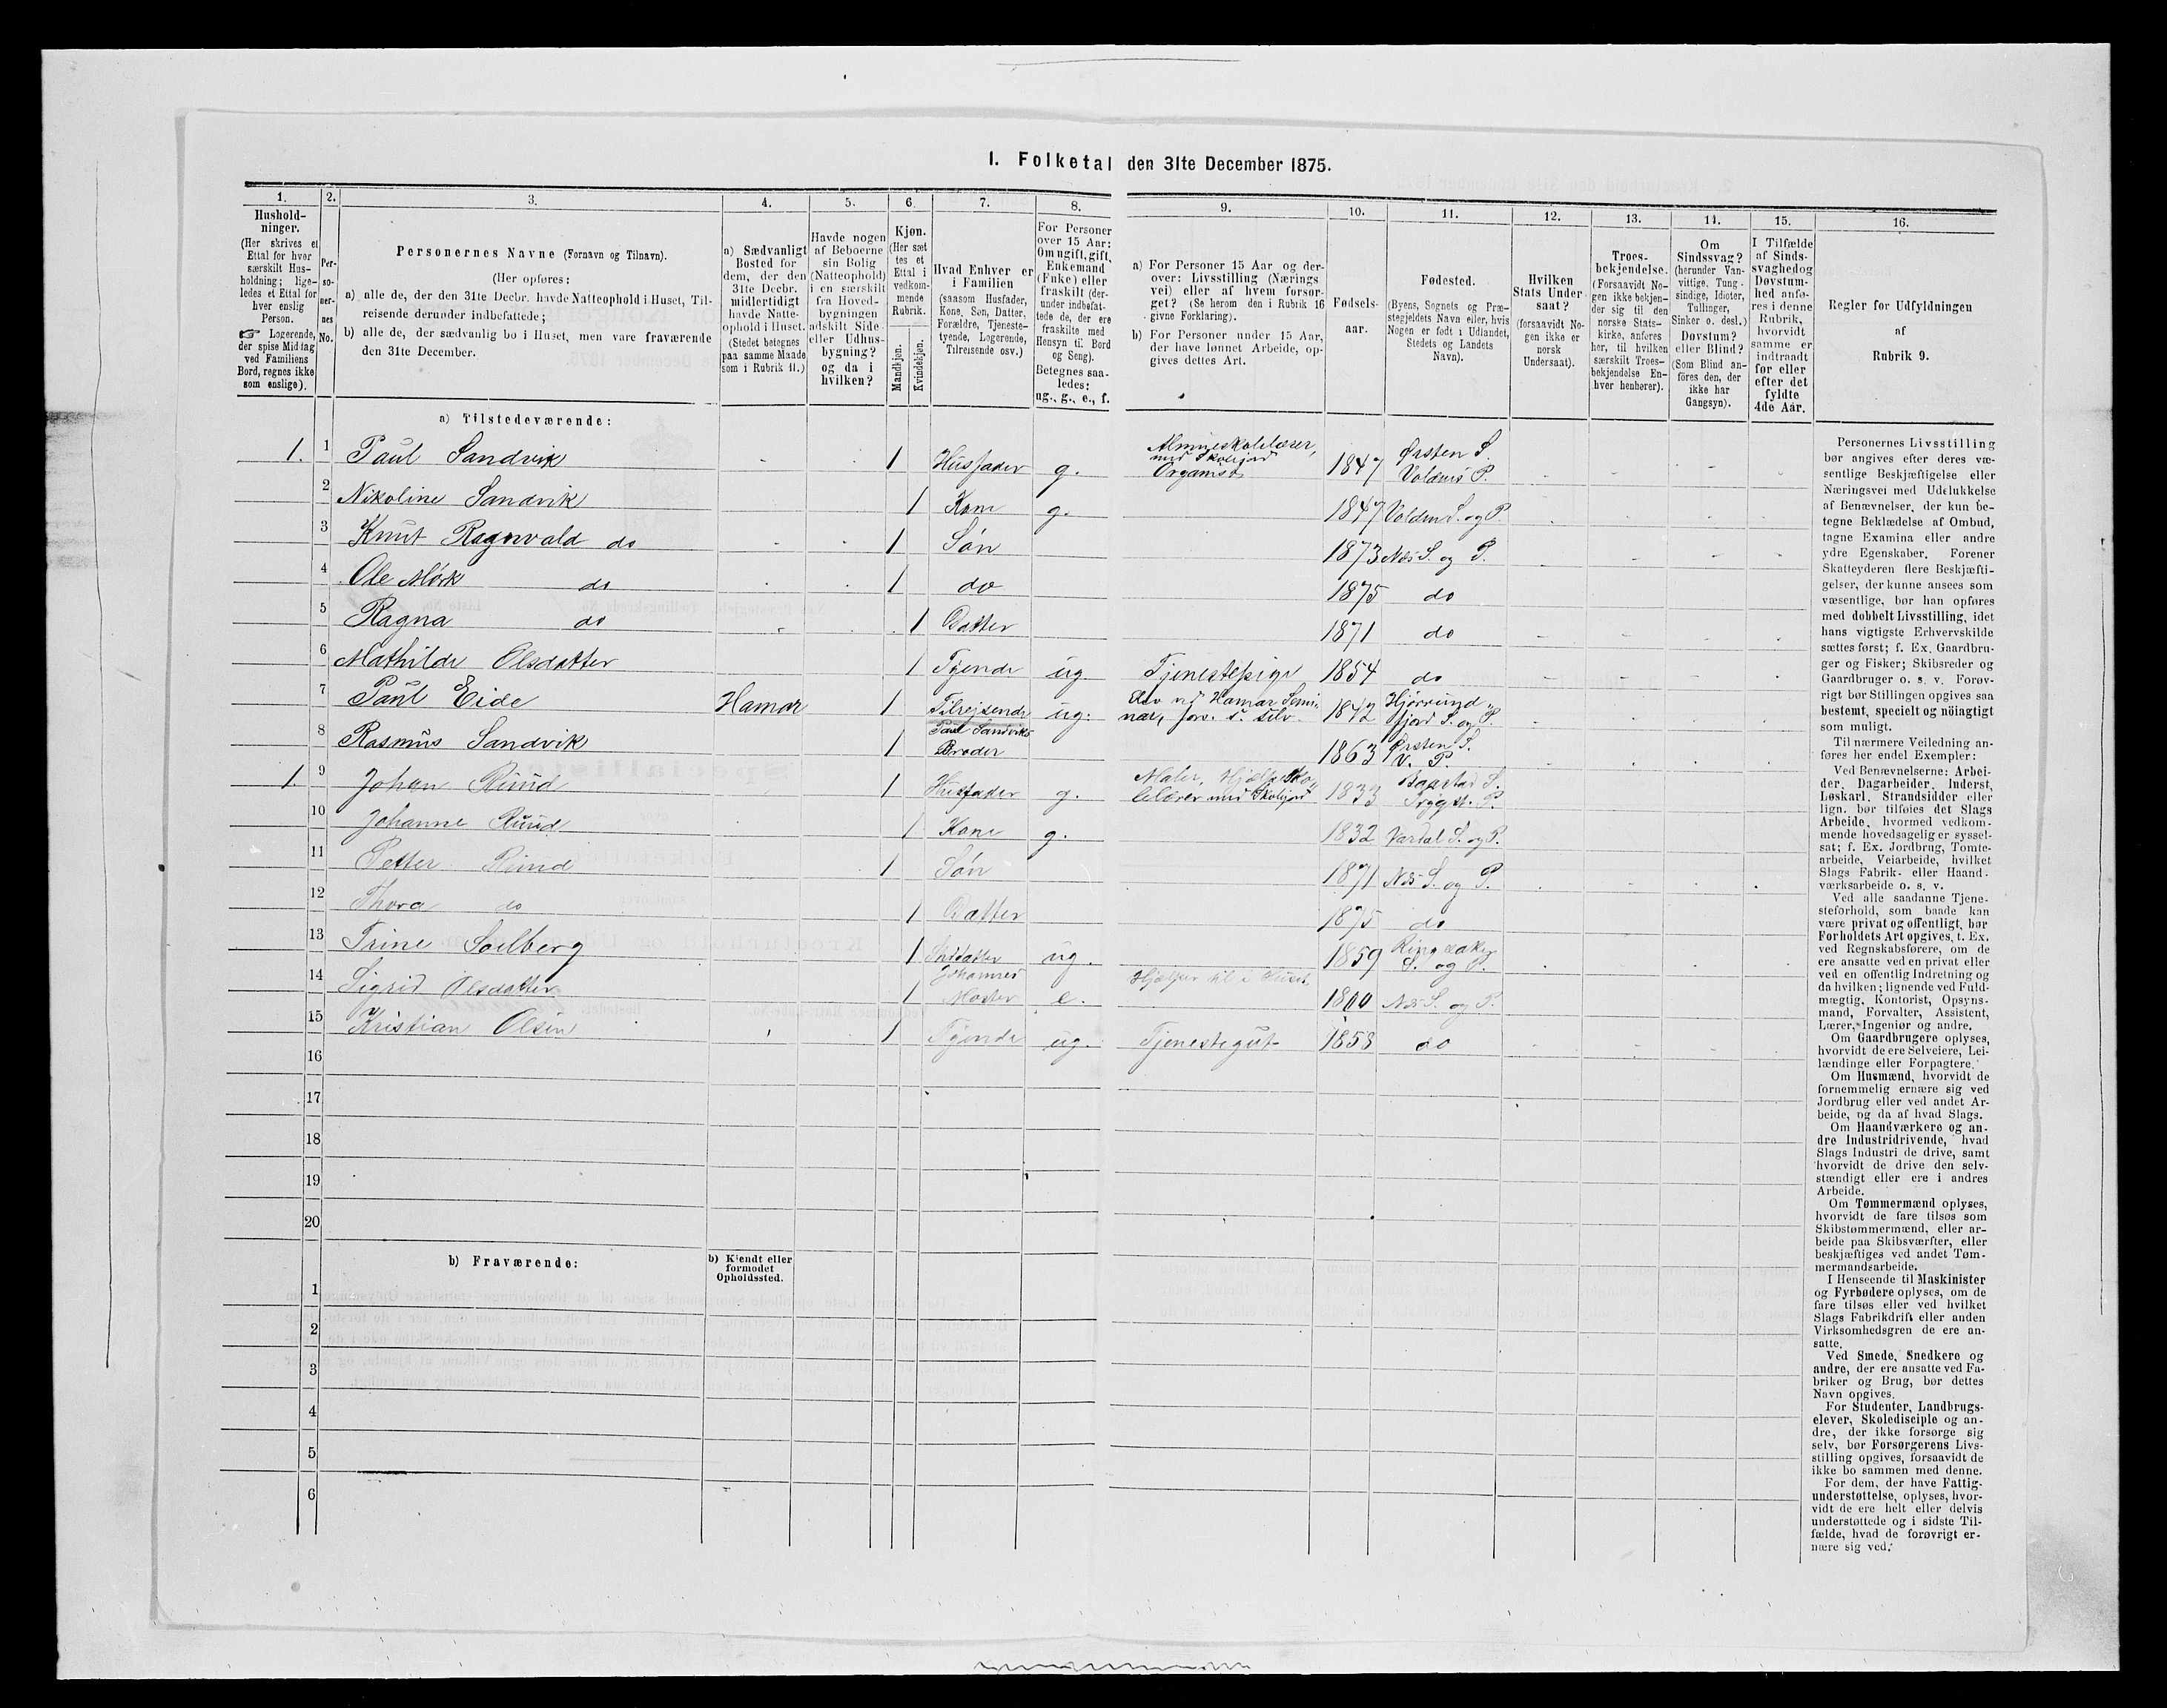 1. Folketal den 31te December 1875.
1. 2. 3. 4. 5. 6. 7. 8. 9. 10. 11. 12. 13. 14. 15. 16.
Hushold-
ninger.
(Her skrives et
Ettal for hver
særskilt Hus-
holdning; lige-
ledes et Ettal for
hver enslig
Person.
☞ Logerende,
der spise Middag
ved Familiens
Bord, regnes ikke
som enslige).
Per-
so-
ner-
nes
No.
Personernes Navne (Fornavn og Tilnavn).
(Her opføres:
a) alle de, der den 31te Decbr. havde Natteophold i Huset, Til-
reisende derunder indbefattede;
b) alle de, der sædvanlig bo i Huset, men vare fraværende
den 31te December.
a) Sædvanligt
Bosted for
dem, der den
31te Decbr.
midlertidigt
havde Natte-
ophold i Huset.
(Stedet betegnes
paa samme Maade
som i Rubrik 11.)
Havde nogen
af Beboerne
sin Bolig
(Natteophold)
i en særskilt
fra Hoved-
bygningen
adskilt Side-
eller Udhus-
bygning?
og da i
hvilken?
Kjøn.
(Her sæt-
tes et
Ettal i
vedkom-
mende
Rubrik.
Mandkjøn.
Kvindekjøn.
Hvad Enhver er
i Familien
(saasom Husfader,
Kone, Søn, Datter,
Forældre, Tjeneste-
tyende, Logerende,
Tilreisende osv.)
For Personer
over 15 Aar:
Om ugift, gift,
Enkemand
(Enke) eller
fraskilt (der-
under indbefat-
tede de, der ere
fraskilte med
Hensyn til Bord
og Seng).
Betegnes saa-
ledes:
ug., g., e., f.
a) For Personer 15 Aar og der-
over: Livsstilling (Nærings
vei) eller af hvem forsør-
get? (Se herom den i Rubrik 16
givne Forklaring).
b) For Personer under 15 Aar,
der have lønnet Arbeide, op-
gives dettes Art.
Fødsels-
aar.
Fødested.
(Byens, Sognets og Præ-
stegjeldets Navn eller, hvis
Nogen er født i Udlandet,
Stedets og Landets
Navn).
Hvilken
Stats Under-
saat?
(forsaavidt No-
gen ikke er
norsk
Undersaat).
Troes-
bekjendelse.
(Forsaavidt No-
gen ikke bekjen-
der sig til den
norske Stats-
kirke, anføres
her, til hvilken
særskilt Troes-
bekjendelse En-
hver henhører).
Om
Sindssvag?
(herunder Van-
vittige, Tung-
sindige, Idioter,
Tullinger,
Sinker o. desl.)
Døvstum?
eller Blind?
(Som Blind an-
føres den, der
ikke har
Gangsyn).
I Tilfælde
af Sinds-
svaghed og
Døvstum-
hed anfø-
res i denne
Rubrik,
hvorvidt
samme er
indtraadt
før eller
efter det
fyldte
4de Aar.
Regler for Udfyldningen
af
Rubrik 9.
a) Tilstedeværende:
1. 1 Paul Sandvik 1 Husfader g. Almueskolelærer, med Skolejord 1847 Ørsten S. Voldens P.
2 Nikoline Sandvik 1 Kone g. 1847 Volden S. og P.
3 Knut Ragnvald do 1 Søn 1873 Næs S. og P.
4 Ole Mörk do 1 do 1875 do
5 Ragna do 1 Datter 1871 do
6 Mathilde Olsdatter 1 Tyende ug Tjenestepige 1854 do
7 Paul Eide Hamar 1 Tilrejsende ug. Elev ved Hamar Semi- nar, fors. s. selv. 1842 Hjörund- fjord S. og P.
8 Rasmus Sandvik 1 Paul Sandviks Broder 1863 Ørsten S. V. P.
1. 9 Johan Rund 1 Husfader g. Maler, Hjælpesko- lelærer med Skolejord 1833 S. P.
10 Johanne Rund 1 Kone g. 1832 Vardal S. og P.
11 Petter Rund 1 Søn 1871 Næs S. og P.
12 Thora do 1 Datter 1875 do
13 Trine Soelberg 1 ug. 1859 Ringsaker S. og P.
14 Sigrid Olsdatter 1 Johannes Moster e. Hjælper til i Huset 1800 Næs S. og P.
15 Kristian Olsen 1 Tyende ug. Tjenestegut 1858 do
16
17
18
19
20
b) Fraværende:
b) Kjendt eller
formodet
Opholdssted.
1
2
3
4
5
6
Personernes Livsstilling
bør angives efter deres væ-
sentlige Beskjæftigelse eller
Næringsvei med Udelukkelse
af Benævnelser, der kun be-
tegne Beklædelse af Ombud,
tagne Examina eller andre
ydre Egenskaber. Forener
Skatteyderen flere Beskjæfti-
gelser, der kunne ansees som
væsentlige, bør han opføres
med dobbelt Livsstilling, idet
hans vigtigste Erhvervskilde
sættes først; f. Ex. Gaardbru-
ger og Fisker; Skibsreder og
Gaardbruger o. s. v. Forøv-
rigt bør Stillingen opgives saa
bestemt, specielt og nöiagtigt
som muligt.
Til nærmere Veiledning an-
føres her endel Exempler:
Ved Benævnelserne: Arbei-
der, Dagarbeider, Inderst,
Løskarl, Strandsidder eller
lign. bør tilføies det Slags
Arbeide, hvormed vedkom-
mende hovedsagelig er syssel-
sat; f. Ex. Jordbrug, Tomte-
arbeide, Veiarbeide, hvilket
Slags Fabrik- eller Haand-
værksarbeide o. s. v.
Ved alle saadanne Tjene-
steforhold, som baade kan
være privat og offentligt, bør
Forholdets Art opgives, t. Ex.
ved Regnskabsførere, om de
ere ansatte ved en privat eller
ved en offentlig Indretning og
da hvilken; lignende ved Fuld-
mægtig, Kontorist, Opsyns-
mand, Forvalter, Assistent,
Lærer, Ingeniør og andre.
Om Gaardbrugere oplyses,
hvorvidt de ere Selveiere, Lei-
lændinge eller Forpagtere.
Om Husmænd, hvorvidt de
fornemmelig ernære sig ved
Jordbrug eller ved andet Ar-
beide, og da af hvad Slags.
Om Haandværkere og an-
dre Industridrivende, hvad
Slags Industri de drive, samt
hvorvidt de drive den selv-
stændigt eller ere i andres
Arbeide.
Om Tømmermænd oplyses,
hvorvidt de fare tilsøs som
Skibstømmermænd, eller ar-
beide paa Skibsværfter, eller
beskjæftiges ved andet Tøm-
mermandsarbeide.
I Henseende til Maskinister
og Fyrbødere oplyses, om de
fare tilsøs eller ved hvilket
Slags Fabrikdrift eller anden
Virksomhedsgren de ere an-
satte.
Ved Smede, Snedkere og
andre, der ere ansatte ved Fa-
briker og Brug, bør dettes
Navn opgives.
For Studenter, Landbrugs-
elever, Skoledisciple og an-
dre, der ikke forsørge sig
selv, bør Forsørgerens Livs-
stilling opgives, forsaavidt de
ikke bo sammen med denne.
For dem, der have Fattig-
understøttelse, oplyses, hvor-
vidt de ere helt eller delvis
understøttede og i sidste Til-
fælde, hvad de forøvrigt er-
nære sig ved.